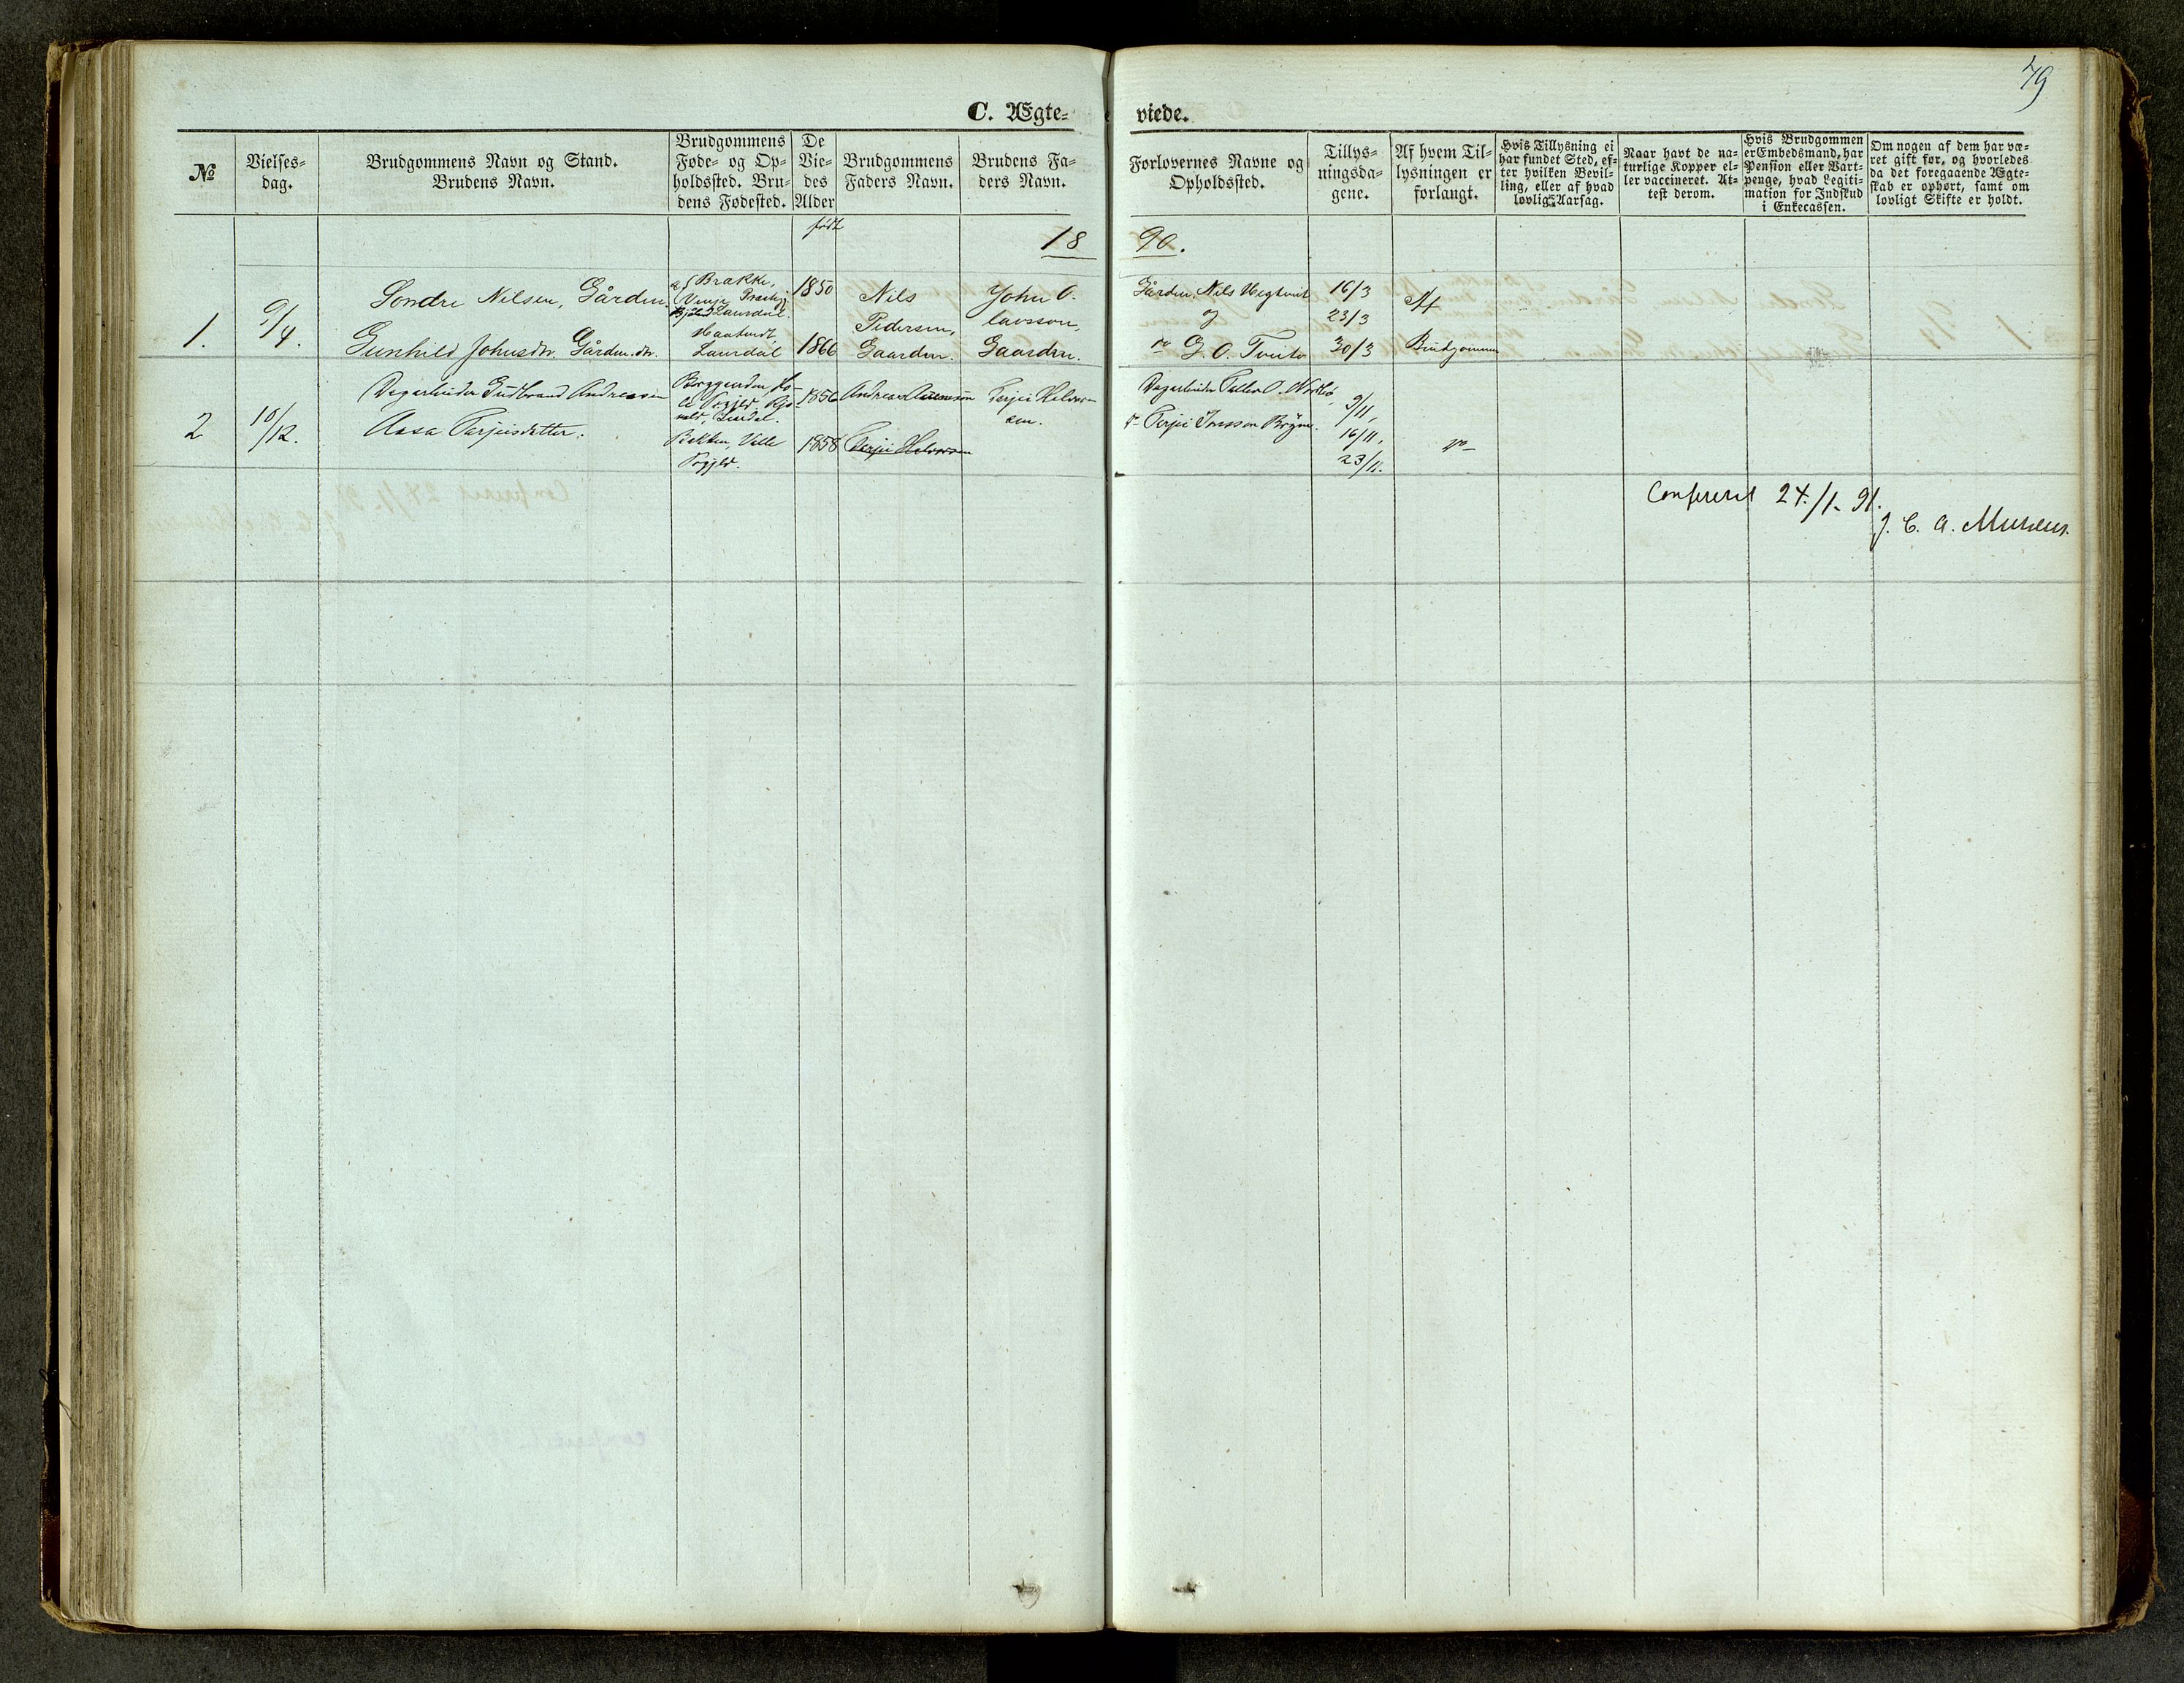 79
C. Ægte-
viede.
№
Vielses-
dag.
Brudgommens Navn og Stand.
Brudens Navn.
Brudgommens
Føde- og Op-
holdssted. Bru-
dens Fødested.
De
Vie-
des
Alder
Brudgommens
Faders Navn.
Brudens Fa-
ders Navn.
Forlovernes Navne og
Opholdssted.
Tillys-
ningsda-
gene.
Af hvem Til-
lysningen er
forlangt.
Hvis Tillysning ei
har fundet Sted, ef-
ter hvilken Bevil-
ling, eller af hvad
lovlig Aarsag.
Naar havt de na-
turlige Kopper el-
ler vaccineret. At-
test derom.
Hvis Brudgommen
er Embedsmand, har
Pension eller Vart-
penge, hvad Legiti-
mation for Indskud
i Enkecassen.
Om nogen af dem har væ-
ret gift før, og hvorledes
da det foregaaende Ægte-
skab er ophørt, samt om
lovligt Skifte er holdt.
født
18
90.
1.
9/4.
Sondre Nilsen, Gården.
Gunhild Johnsdtr. Gårdm.dtr.
Brække,
Laurdal
Laurdal
1850
1866
Nils
Pedersen,
Gaardm.
John O-
lavsson,
Gaardm.
Gårdm. Nils Hegtveit
og
do G. O. Tveito
16/3
23/3
30/3
Af
Brudgommen
2
10/12.
Dagarbeider Gudbrand Andreasen
Aasa Tarjeisdatter.
Bakken Valle
Prgjld.
1856
1858
Andreas
Terjei Halvorsen
Terjei Halvor-
sen.
Dagarbeider
do Terjei
9/11,
16/11,
23/11.
do
Confereret 24/1-91.
J. C. A. Musæus.